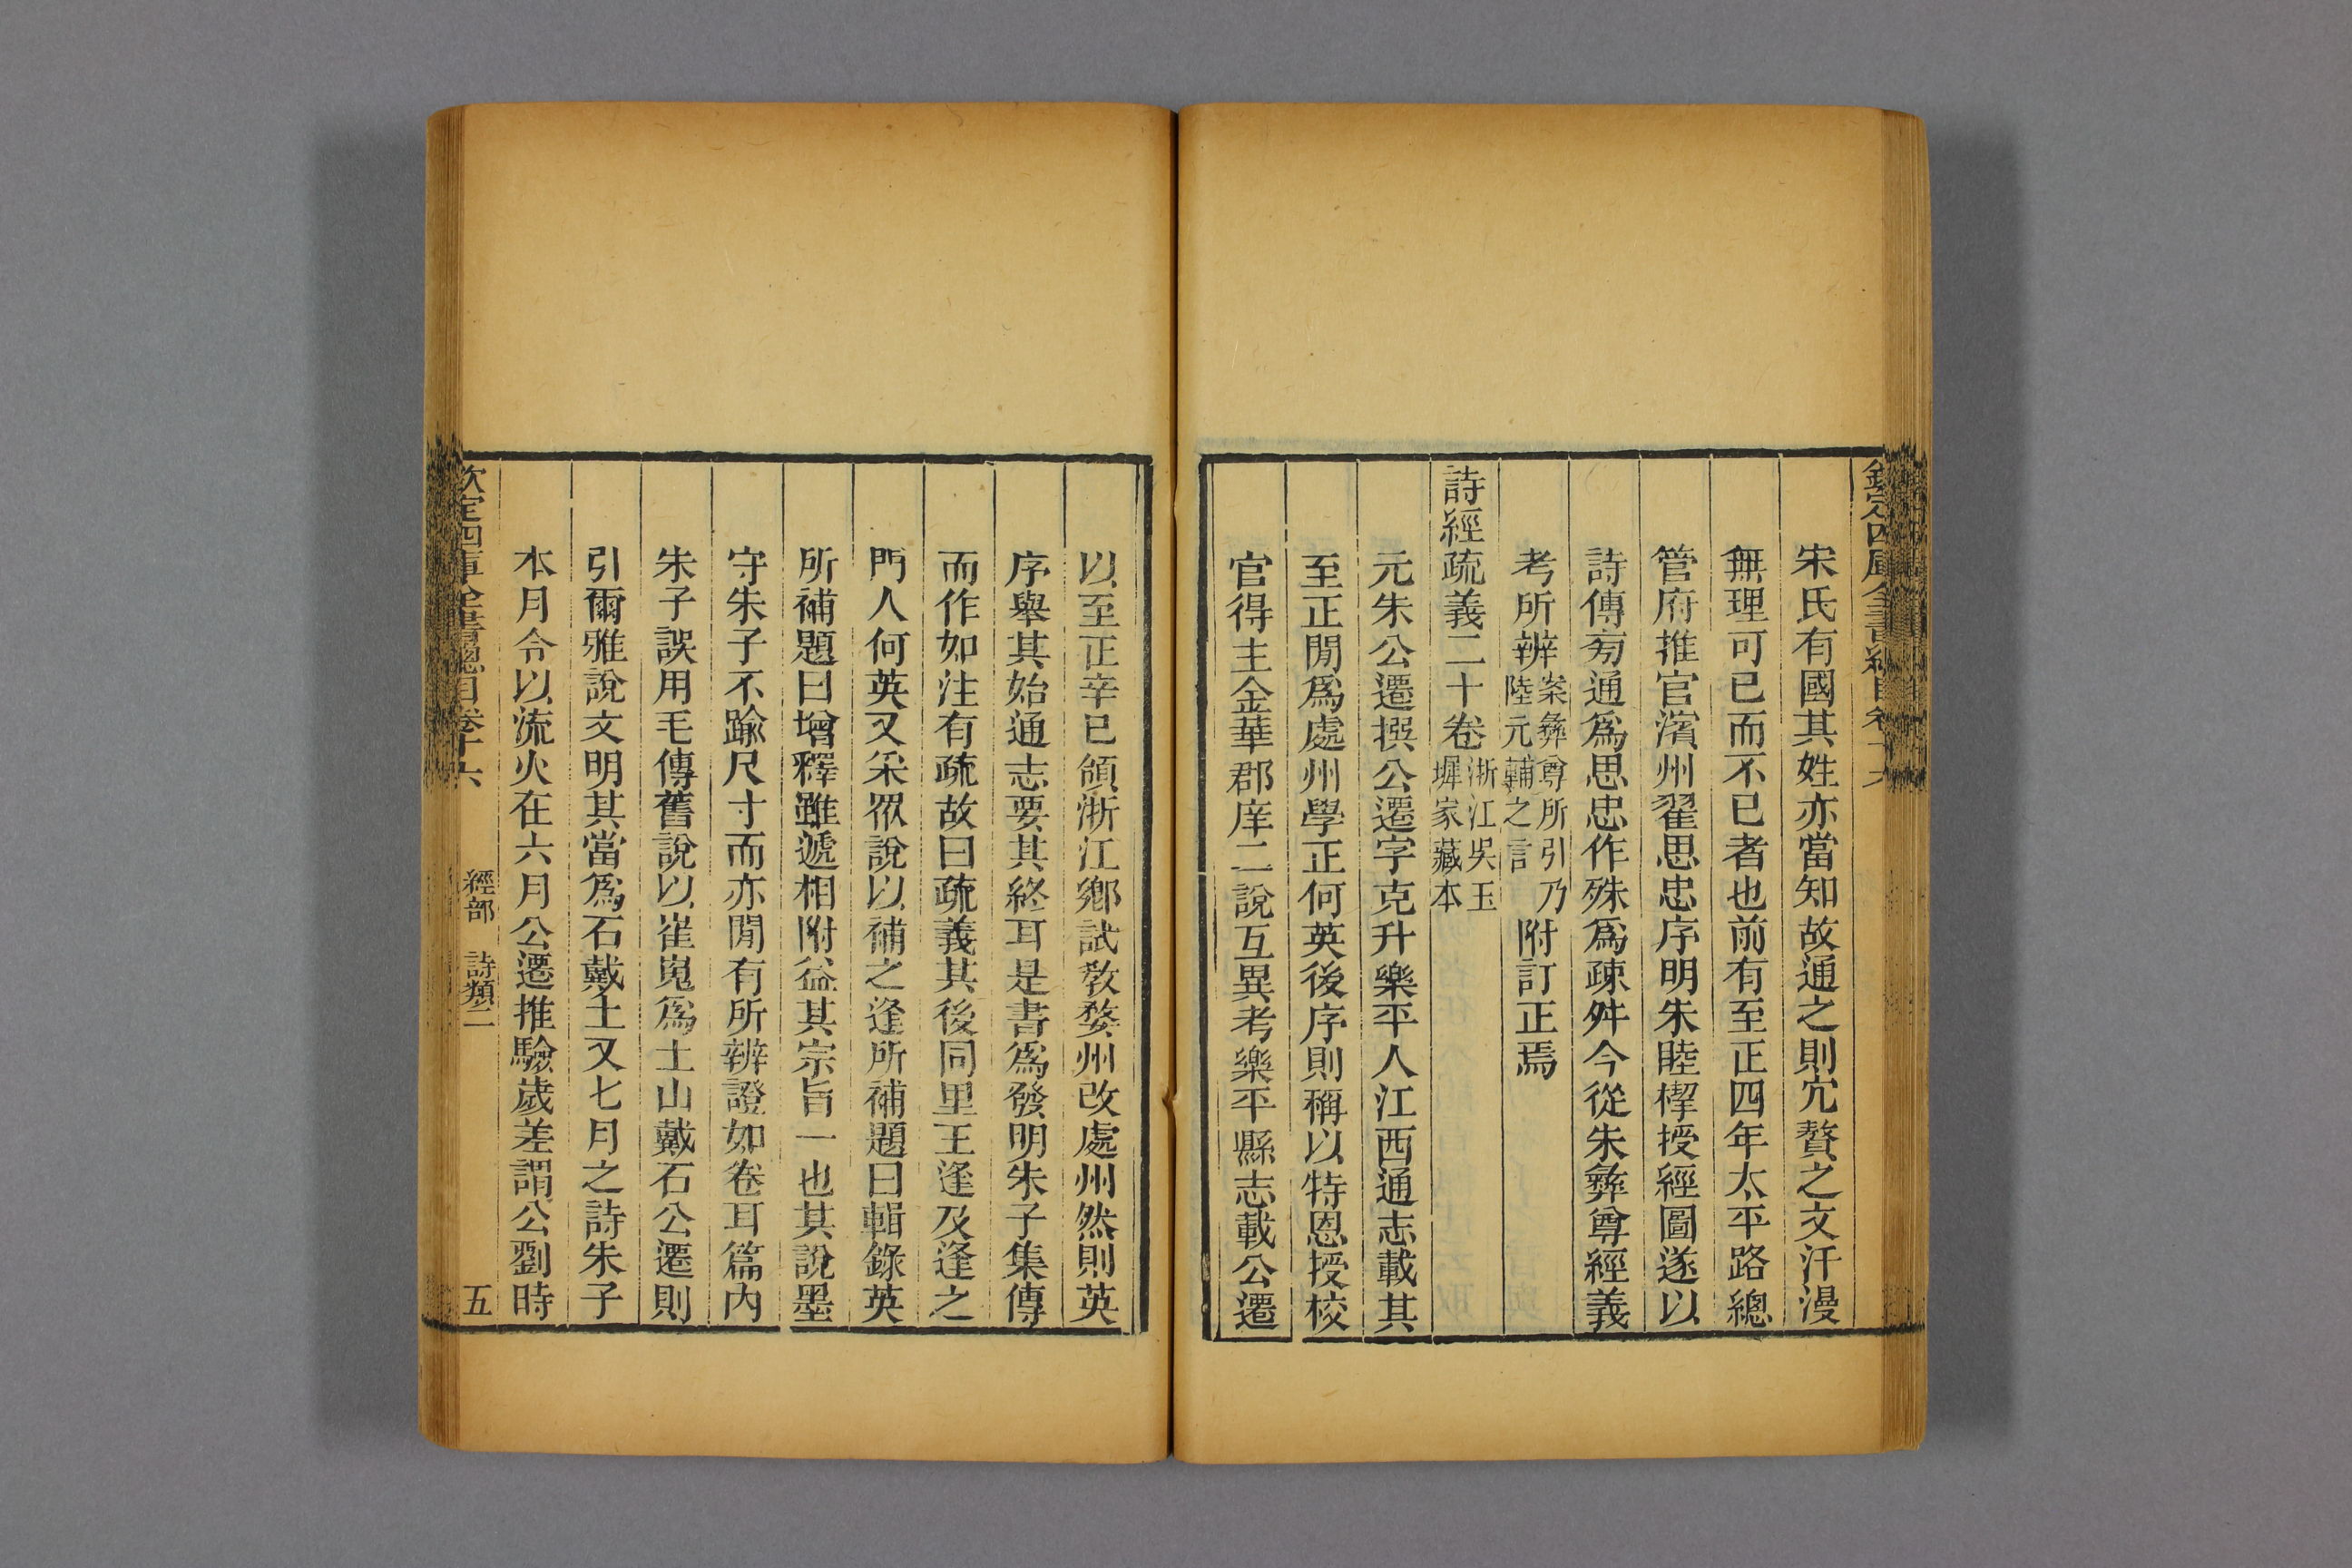 欽定四庫全書總目卷十六
宋氏有國其姓亦當知故通之則宂贅之文汗漫
無理可已而不已者也前有至正四年太平路總
管府推官濱州翟思忠序明朱睦㮮授經圖遂以
詩傳㫄通爲思忠作殊爲疎舛今從朱彝尊經義
考所辨案彝尊所引乃陸元輔之言附訂正焉
詩經疏義二十卷浙江吳玉墀家藏本
元朱公遷撰公遷字克升樂平人江西通志載其
至正閒爲處州學正何英後序則稱以特恩授校
官得主金華郡庠二說互異考樂平縣志載公遷
以至正辛巳領浙江鄉試教婺州改處州然則英
序舉其始通志要其終耳是書爲發明朱子集傳
而作如注有疏故曰疏義其後同里王逢及逢之
門人何英又采眾說以補之逢所補題曰輯錄英
所補題曰增釋雖遞相附益其宗旨一也其說墨
守朱子不踰尺寸而亦閒有所辨證如卷耳篇內
朱子誤用毛傳舊說以崔嵬爲土山戴石公遷則
引爾雅說文明其當爲石戴土又七月之詩朱子
本月令以流火在六月公遷推驗歲差謂公劉時
欽定四庫全書總目卷十六 經部 詩類二 五